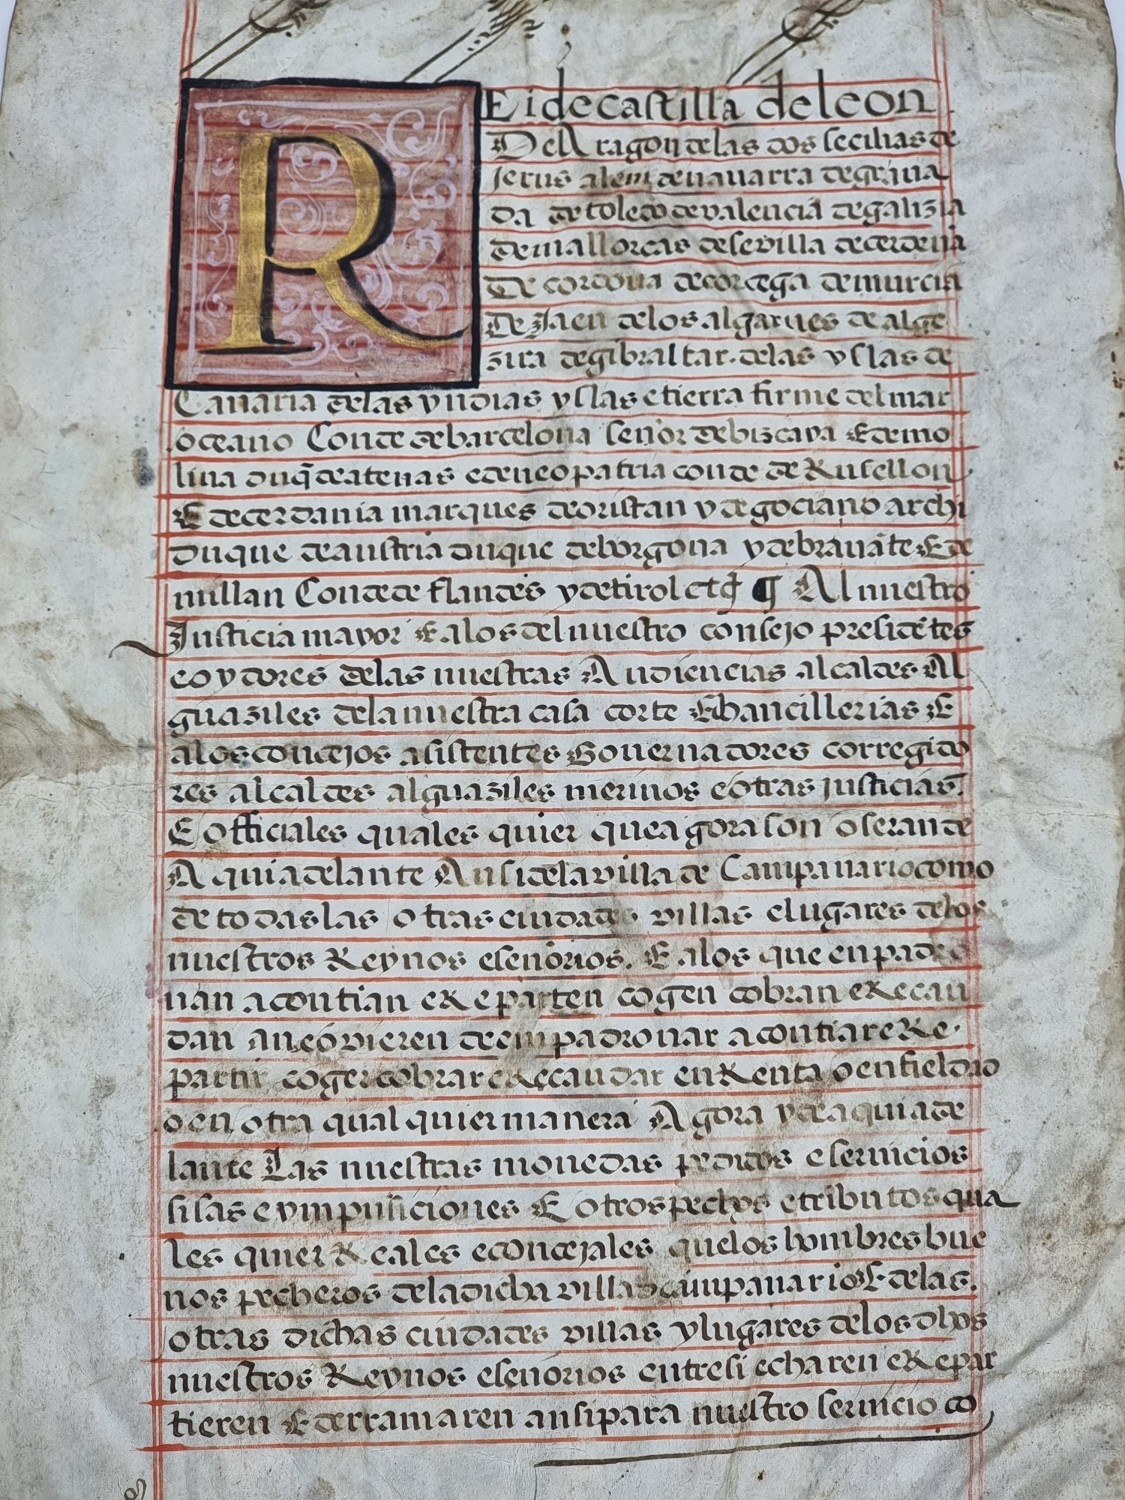 REi de castilla de leon
De Aragon de las dos secilias de
Jerusalem de nauarra de grana
da de toledo de valencia de galizia
de mallorcas de seuilla de cerdeña
De cordoua de corcega de murcia
De Jaen de los algarues de alge
zira de gibraltar. de las yslas de
Canaria de las yndias yslas e tierra firme del mar
oceano Conde de barcelona señor de bizcaya E de mo
lina duq̃ de atenas e de neopatria conde de Rusellon
E de cerdania marques de oristan y de gociano archi
duque de austria duque de borgoña y de brauãte E de
millan Conde de flandes y de tirol etc̃ ¶ Al nuestro
Justicia mayor E a los del nuestro consejo presidẽtes
e oydores de las nuestras Audiencias alcaldes Al
guaziles de la nuestra casa corte E chancillerias E
a los concejos asistentes Gouernadores corregido
res alcaldes alguaziles merinos e otras justicias.
E officiales quales quier que agora son o seran de
Aqui adelante Ansi de la villa de Campanario como
de todas las otras ciudades villas e lugares de los
nuestros Reynos e señorios. E a los que enpadro
nan acontian e Reparten cogen cobran e Recau
dan an e ovieren de empadronar acontiar e Re.
partir coger cobrar e Recaudar en Renta o en fieldad
o en otra qual quier manera Agora y de aqui ade
lante Las nuestras monedas pedidos e seruicios
sisas e ympusiciones E otros pechos e tributos qua
les quier Reales e concejales que los hombres bue
nos pecheros de la dicha villa de campanario E de las.
otras dichas ciudades villas y lugares de los dhos
nuestros Reynos e señorios entre si echaren e Repar
tieren E derramaren ansi para nuestro seruicio co